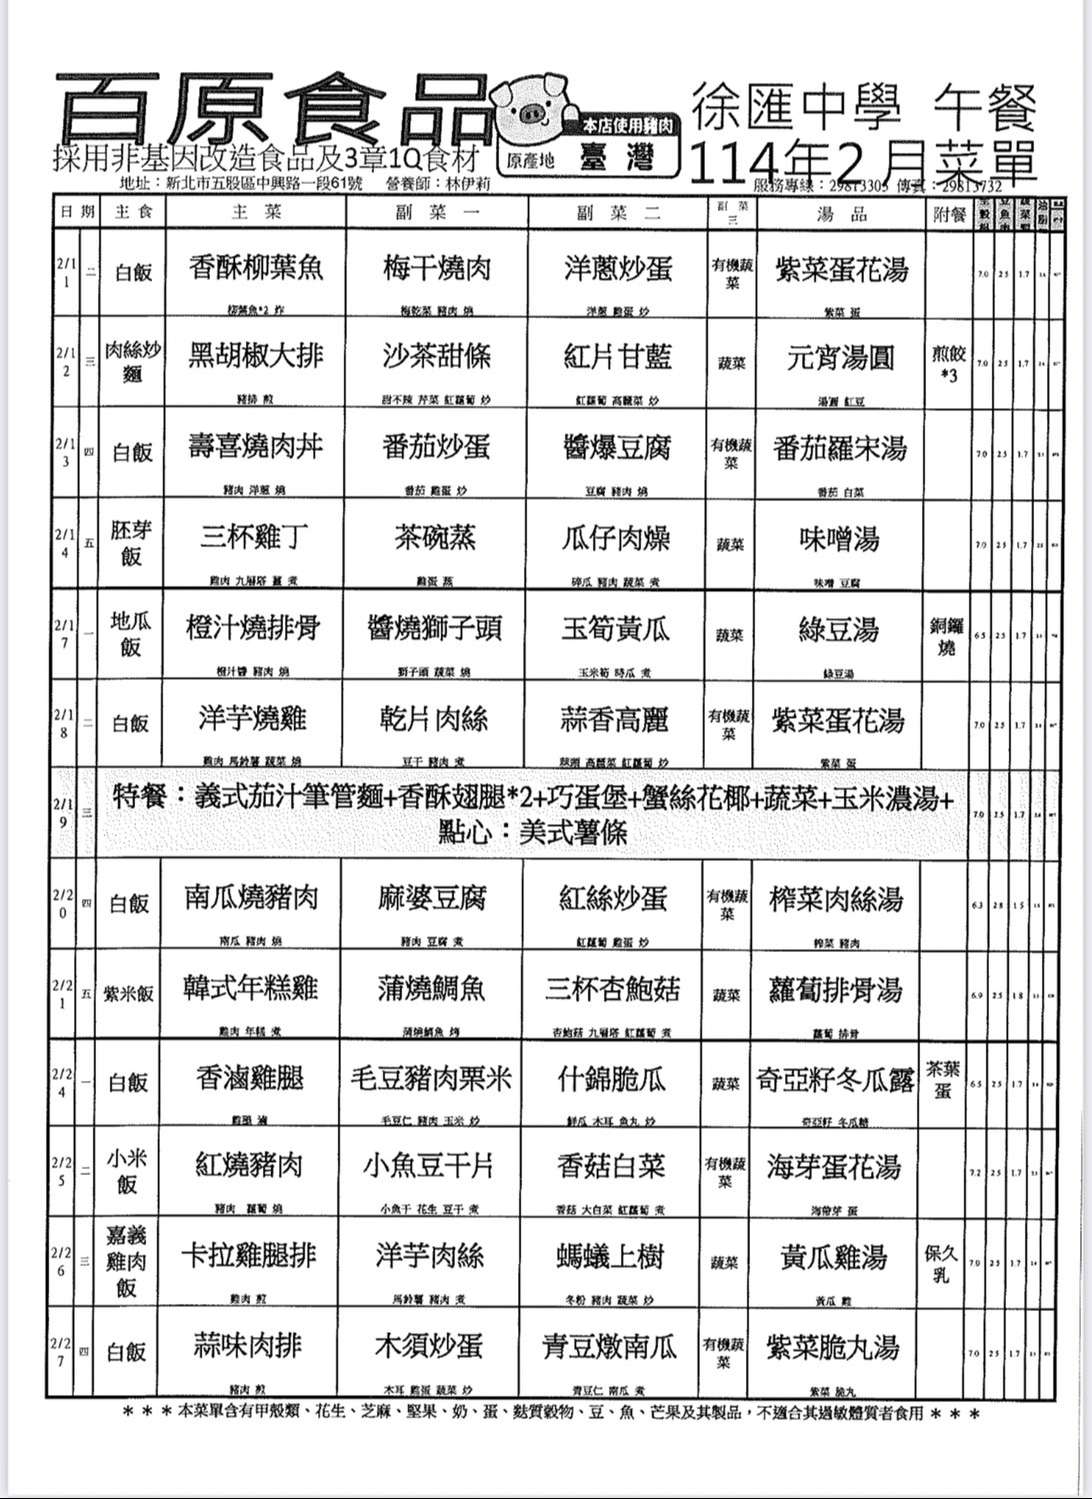 百原食品
本店使用豬肉
原產地 臺灣
徐匯中學 午餐
採用非基因改造食品及3章1Q食材
114年2月菜單
地址：新北市五股區中興路一段61號 營養師：林伊莉
服務專線：29813305 傳真：29813732
日期 主食 主菜 副菜一 副菜二 副菜三 湯品 附餐
2/11 二 白飯 香酥柳葉魚 梅干燒肉 洋蔥炒蛋 有機蔬菜 紫菜蛋花湯 7.0 2.5 1.7
柳葉魚*2 炸 梅乾菜 豬肉 燒 洋蔥 雞蛋 炒 紫菜 蛋
2/12 三 肉絲炒麵 黑胡椒大排 沙茶甜條 紅片甘藍 蔬菜 元宵湯圓 煎餃*3 7.0 2.5 1.7
豬排 煎 甜不辣 芹菜 紅蘿蔔 炒 紅蘿蔔 高麗菜 炒 湯圓 紅豆
2/13 四 白飯 壽喜燒肉丼 番茄炒蛋 醬爆豆腐 有機蔬菜 番茄羅宋湯 7.0 2.5 1.7
豬肉 洋蔥 燒 番茄 雞蛋 炒 豆腐 豬肉 燒 番茄 白菜
2/14 五 胚芽飯 三杯雞丁 茶碗蒸 瓜仔肉燥 蔬菜 味噌湯 7.0 2.5 1.7
雞肉 九層塔 薑 煮 雞蛋 蒸 碎瓜 豬肉 蔬菜 煮 味噌 豆腐
2/17 一 地瓜飯 橙汁燒排骨 醬燒獅子頭 玉筍黃瓜 蔬菜 綠豆湯 銅鑼燒 6.5 2.5 1.7
橙汁醬 豬肉 燒 獅子頭 蔬菜 燒 玉米筍 時瓜 煮 綠豆湯
2/18 二 白飯 洋芋燒雞 乾片肉絲 蒜香高麗 有機蔬菜 紫菜蛋花湯 7.0 2.5 1.7
雞肉 馬鈴薯 蔬菜 燒 豆干 豬肉 煮 蒜頭 高麗菜 紅蘿蔔 炒 紫菜 蛋
2/19 三 特餐：義式茄汁筆管麵+香酥翅腿*2+巧蛋堡+蟹絲花椰+蔬菜+玉米濃湯+ 7.0 2.5 1.7
點心：美式薯條
2/20 四 白飯 南瓜燒豬肉 麻婆豆腐 紅絲炒蛋 有機蔬菜 榨菜肉絲湯 6.3 2.8 1.5
南瓜 豬肉 燒 豬肉 豆腐 煮 紅蘿蔔 雞蛋 炒 榨菜 豬肉
2/21 五 紫米飯 韓式年糕雞 蒲燒鯛魚 三杯杏鮑菇 蔬菜 蘿蔔排骨湯 6.9 2.5 1.8
雞肉 年糕 煮 蒲燒鯛魚 烤 杏鮑菇 九層塔 紅蘿蔔 煮 蘿蔔 排骨
2/24 一 白飯 香滷雞腿 毛豆豬肉栗米 什錦脆瓜 蔬菜 奇亞籽冬瓜露 茶葉蛋 6.5 2.5 1.7
雞腿 滷 毛豆仁 豬肉 玉米 炒 鮮瓜 木耳 魚丸 炒 奇亞籽 冬瓜糖
2/25 二 小米飯 紅燒豬肉 小魚豆干片 香菇白菜 有機蔬菜 海芽蛋花湯 7.2 2.5 1.7
豬肉 蘿蔔 燒 小魚干 花生 豆干 煮 香菇 大白菜 紅蘿蔔 煮 海帶芽 蛋
2/26 三 嘉義雞肉飯 卡拉雞腿排 洋芋肉絲 螞蟻上樹 蔬菜 黃瓜雞湯 保久乳 7.0 2.5 1.7
雞肉 煎 馬鈴薯 豬肉 煮 冬粉 豬肉 蔬菜 炒 黃瓜 雞
2/27 四 白飯 蒜味肉排 木須炒蛋 青豆燉南瓜 有機蔬菜 紫菜脆丸湯 7.0 2.5 1.7
豬肉 煎 木耳 雞蛋 蔬菜 炒 青豆仁 南瓜 煮 紫菜 脆丸
＊＊＊本菜單含有甲殼類、花生、芝麻、堅果、奶、蛋、麩質穀物、豆、魚、芒果及其製品，不適合其過敏體質者食用＊＊＊